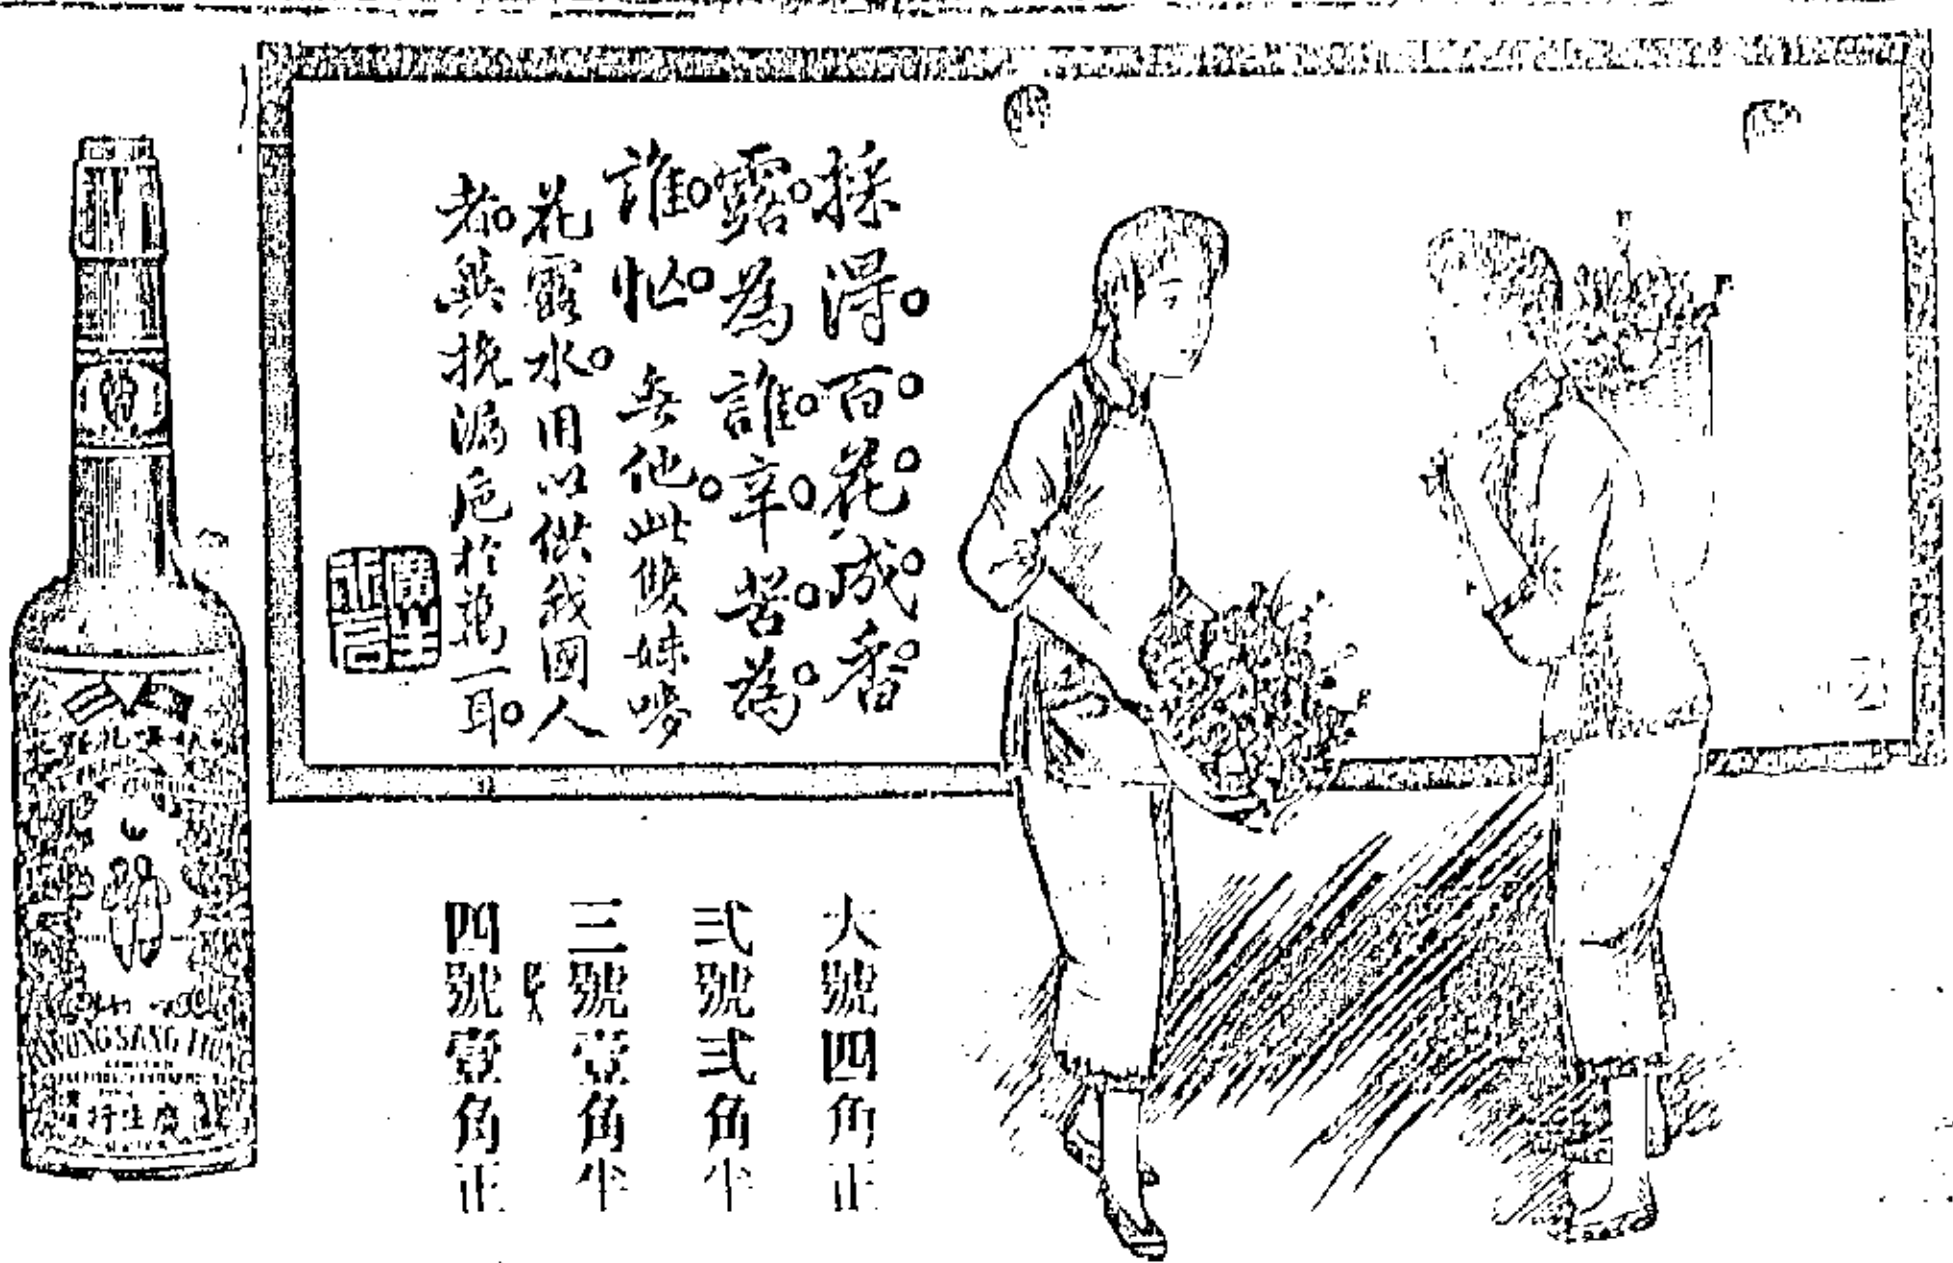 採得百花成香
露為誰辛苦為
誰忙 無他此雙妹嘜
花露水用以供我國人
者與挽漏卮於萬一耳
廣生行局
大號四角正
弍號弍角半
三號壹角半
四號壹角正
KWONG SANG HONG
廣生行